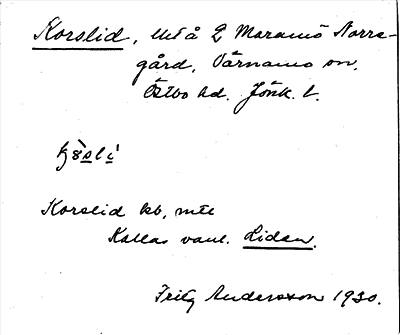 Korslid, utå Maramö Norre-
gård, Värnamo sn,
Östbo hd. Jönk. l.
Korslid kb, mtl
Kallas vanl. Lidan.
Fritz Andersson 1930.